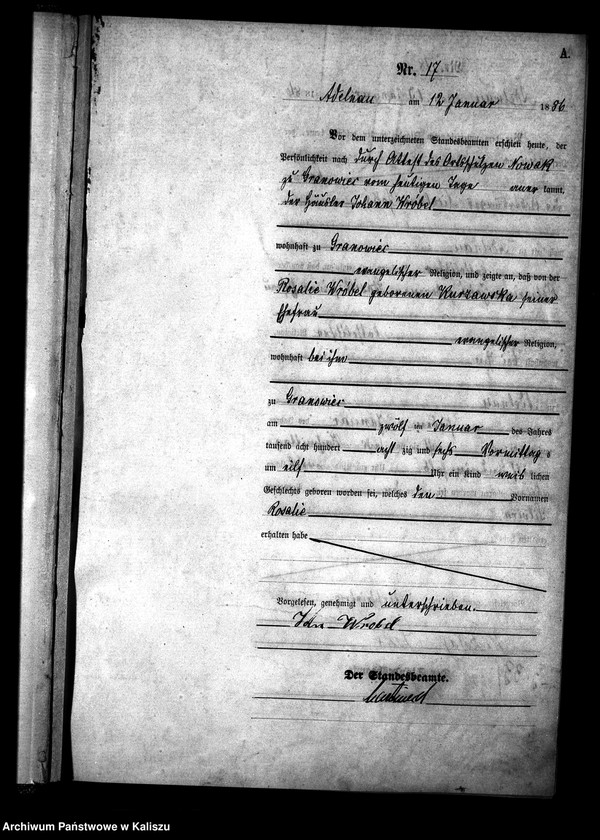 A.
Nr. 17
Adelnau am 12 Januar 1886
Vor dem unterzeichneten Standesbeamten erschien heute, der
Persönlichkeit nach durch Attest des Ortsschulzen Nowak
zu Granowiec vom heutigen Tage aner kannt,
der Häusler Johann Wróbel
wohnhaft zu Granowiec
evangelischer Religion, und zeigte an, daß von der
Rosalie Wróbel geborenen Kurzawska seiner
Ehefrau
evangelischer Religion,
wohnhaft bei ihm
zu Granowiec
am zwölf ten Januar des Jahres
tausend acht hundert acht zig und sechs Vormittag s
um eilf Uhr ein Kind weib lichen
Geschlechts geboren worden sei, welches den Vornamen
Rosalie
erhalten habe
Vorgelesen, genehmigt und unterschrieben.
Jan Wrobel
Der Standesbeamte.
Archiwum Państwowe w Kaliszu